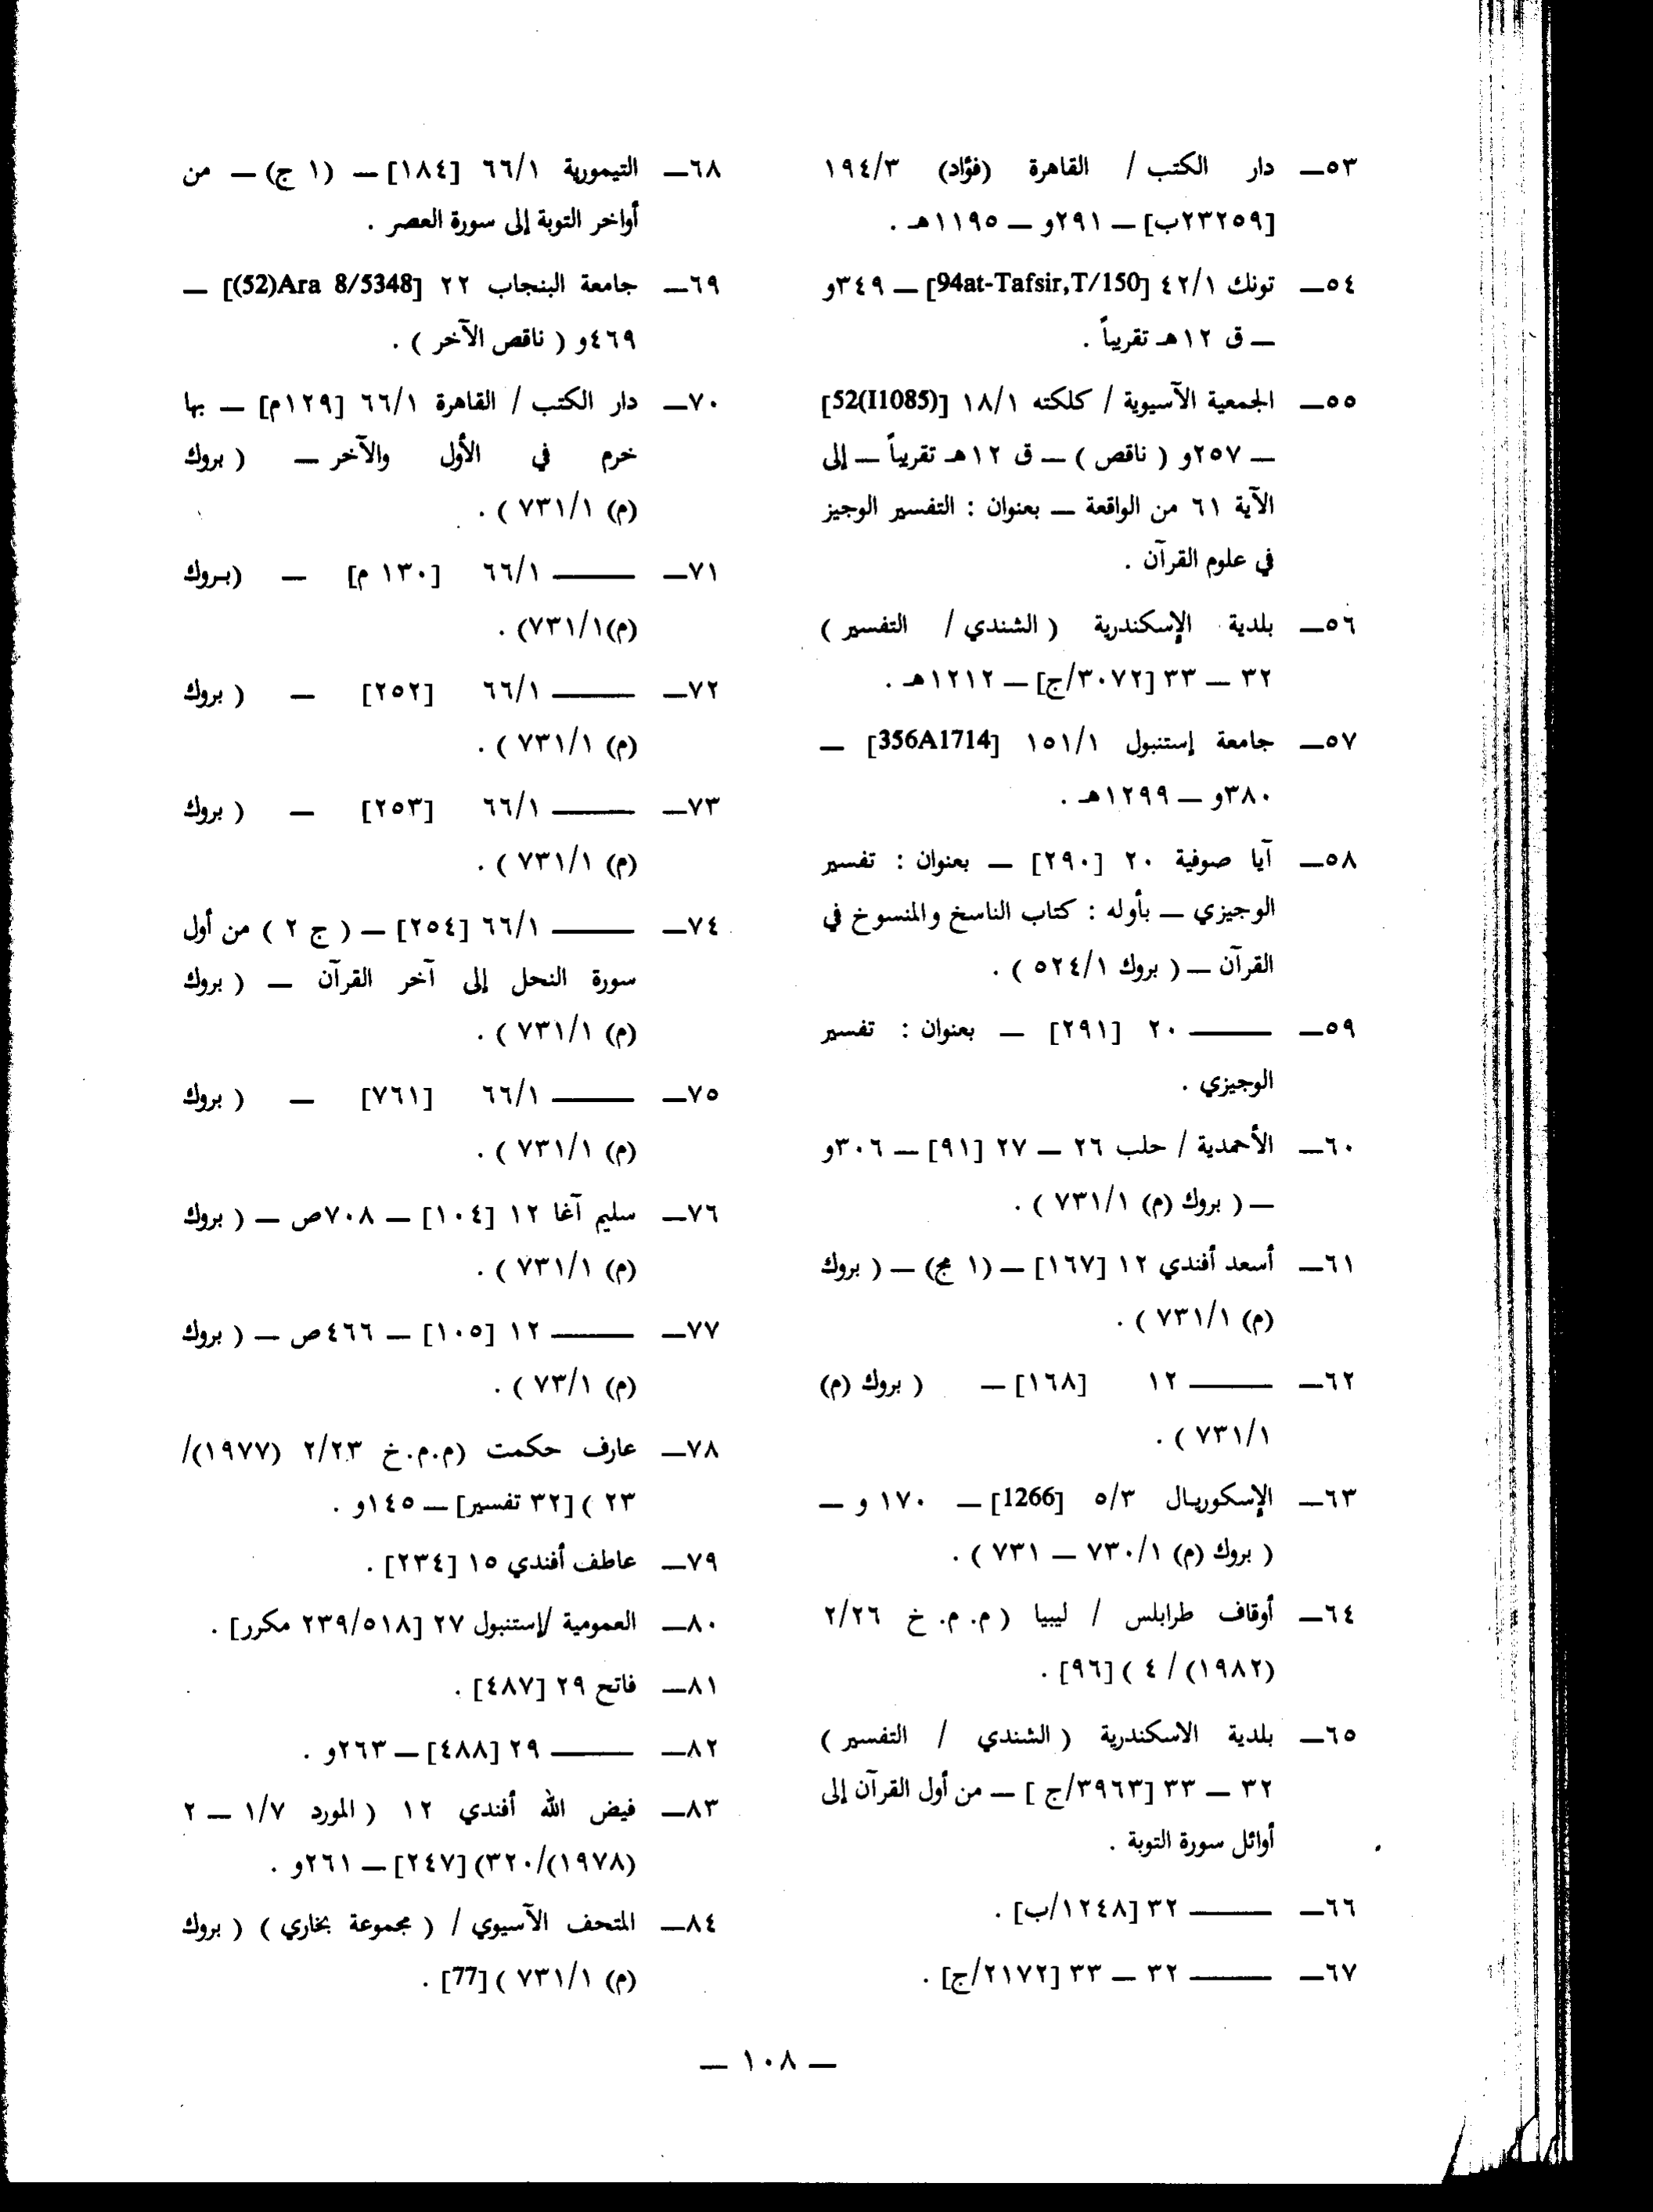 ٥٣— دار الكتب / القاهرة (فؤاد) ١٩٤/٣
[٢٣٢٥٩ب] — ٢٩١و — ١١٩٥هـ .
٥٤— تونك ٤٢/١ [94at-Tafsir,T/150] — ٣٤٩و
— ق ١٢هـ تقريباً .
٥٥— الجمعية الآسيوية / كلكته ١٨/١ [52(I1085)]
— ٢٥٧و ( ناقص ) — ق ١٢هـ تقريباً — إلى
الآية ٦١ من الواقعة — بعنوان : التفسير الوجيز
في علوم القرآن .
٥٦— بلدية الإسكندرية ( الشندي / التفسير )
٣٢ — ٣٣ [٣٠٧٢/ج] — ١٢١٢هـ .
٥٧— جامعة إستنبول ١٥١/١ [356A1714] —
٣٨٠و — ١٢٩٩هـ .
٥٨— آيا صوفية ٢٠ [٢٩٠] — بعنوان : تفسير
الوجيزي — بأوله : كتاب الناسخ والمنسوخ في
القرآن — ( بروك ٥٢٤/١ ) .
٥٩— ——— ٢٠ [٢٩١] — بعنوان : تفسير
الوجيزي .
٦٠— الأحمدية / حلب ٢٦ — ٢٧ [٩١] — ٣٠٦و
— ( بروك (م) ٧٣١/١ ) .
٦١— أسعد أفندي ١٢ [١٦٧] — (١ مج) — ( بروك
(م) ٧٣١/١ ) .
٦٢— ——— ١٢ [١٦٨] — ( بروك (م)
٧٣١/١ ) .
٦٣— الإسكوريال ٥/٣ [1266] — ١٧٠ و —
( بروك (م) ٧٣٠/١ — ٧٣١ ) .
٦٤— أوقاف طرابلس / ليبيا ( م. م. خ ٢/٢٦
(١٩٨٢) / ٤ ) [٩٦] .
٦٥— بلدية الاسكندرية ( الشندي / التفسير )
٣٢ — ٣٣ [٣٩٦٣/ج ] — من أول القرآن إلى
أوائل سورة التوبة .
٦٦— ——— ٣٢ [١٢٤٨/ب] .
٦٧— ——— ٣٢ — ٣٣ [٢١٧٢/ج] .
٦٨— التيمورية ٦٦/١ [١٨٤] — (١ ج) — من
أواخر التوبة إلى سورة العصر .
٦٩— جامعة البنجاب ٢٢ [(52)Ara 8/5348] —
٤٦٩و ( ناقص الآخر ) .
٧٠— دار الكتب / القاهرة ٦٦/١ [١٢٩م] — بها
خرم في الأول والآخر — ( بروك
(م) ٧٣١/١ ) .
٧١— ——— ٦٦/١ [١٣٠ م] — (بروك
(م)٧٣١/١) .
٧٢— ——— ٦٦/١ [٢٥٢] — ( بروك
(م) ٧٣١/١ ) .
٧٣— ——— ٦٦/١ [٢٥٣] — ( بروك
(م) ٧٣١/١ ) .
٧٤— ——— ٦٦/١ [٢٥٤] — ( ج ٢ ) من أول
سورة النحل إلى آخر القرآن — ( بروك
(م) ٧٣١/١ ) .
٧٥— ——— ٦٦/١ [٧٦١] — ( بروك
(م) ٧٣١/١ ) .
٧٦— سليم آغا ١٢ [١٠٤] — ٧٠٨ص — ( بروك
(م) ٧٣١/١ ) .
٧٧— ——— ١٢ [١٠٥] — ٤٦٦ص — ( بروك
(م) ٧٣/١ ) .
٧٨— عارف حكمت (م.م.خ ٢/٢٣ (١٩٧٧)/
٢٣ ) [٣٢ تفسير] — ١٤٥و .
٧٩— عاطف أفندي ١٥ [٢٣٤] .
٨٠— العمومية /إستنبول ٢٧ [٢٣٩/٥١٨ مكرر] .
٨١— فاتح ٢٩ [٤٨٧] .
٨٢— ——— ٢٩ [٤٨٨] — ٢٦٣و .
٨٣— فيض الله أفندي ١٢ ( المورد ١/٧ — ٢
(١٩٧٨)/٣٢٠) [٢٤٧] — ٢٦١و .
٨٤— المتحف الآسيوي / ( مجموعة بخاري ) ( بروك
(م) ٧٣١/١ ) [77] .
— ١٠٨ —